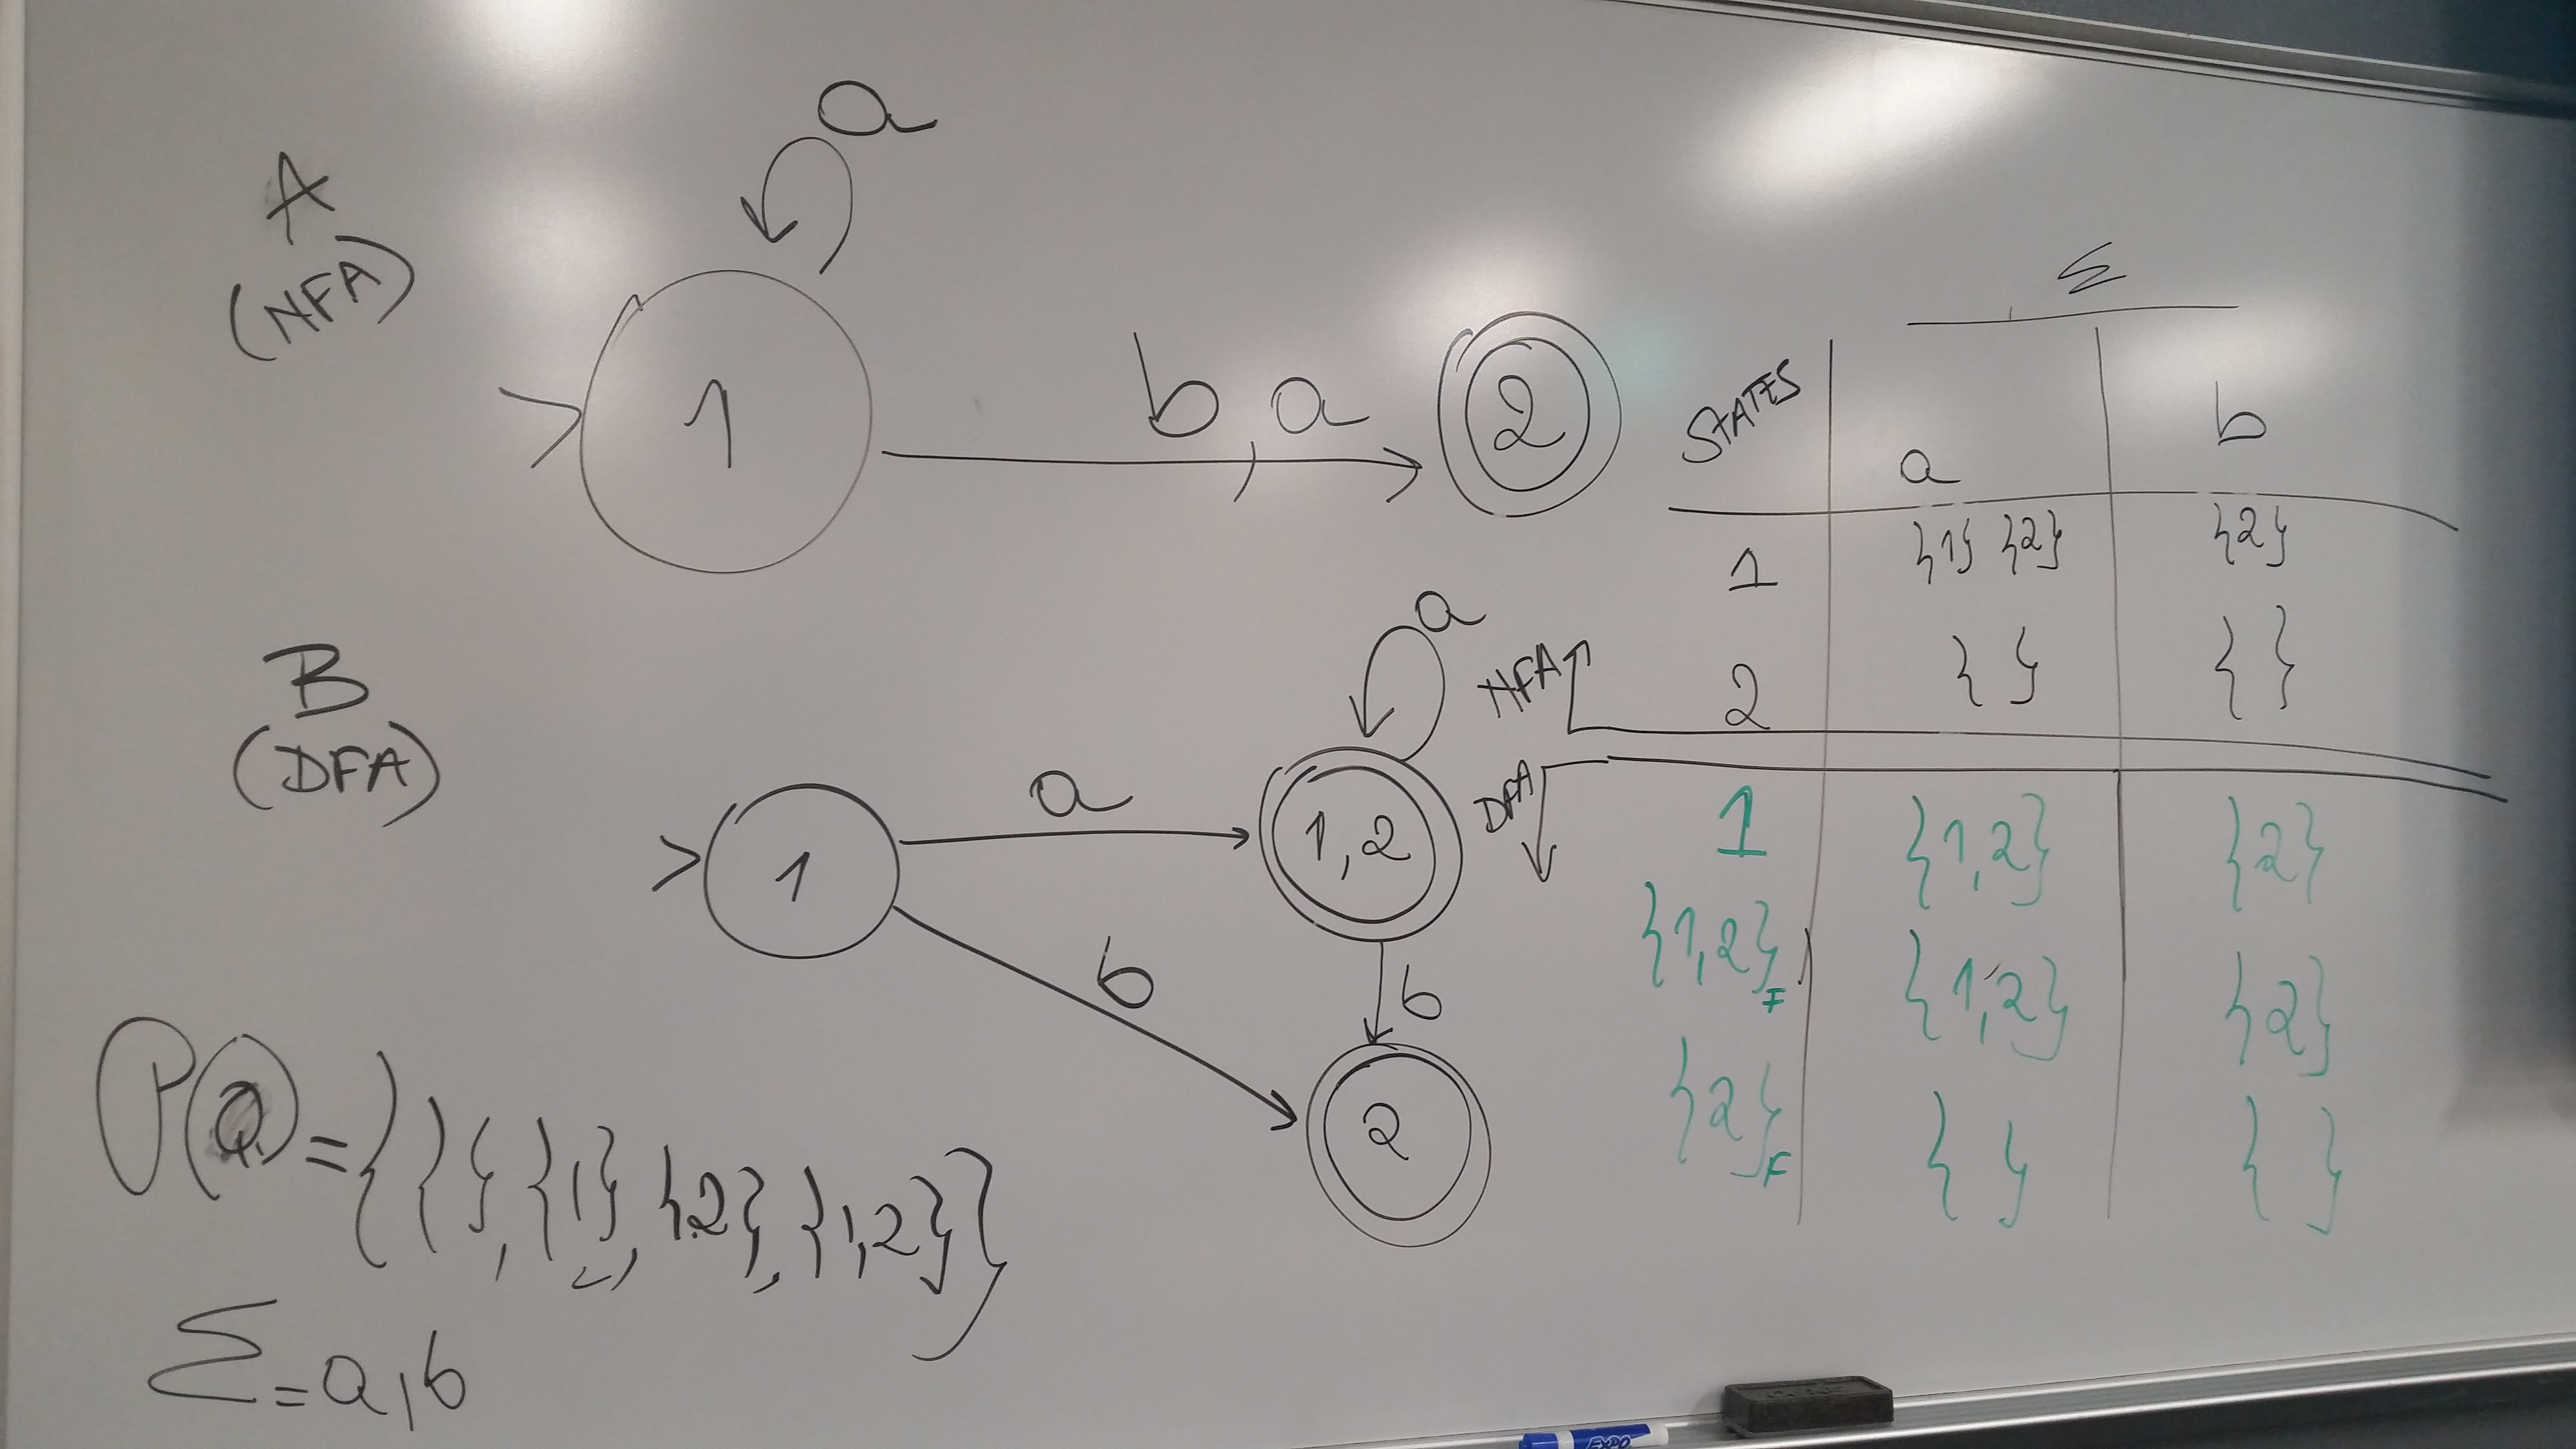 A
(NFA)
a
1
b, a
2
B
(DFA)
a
1
a
1,2
b
b
2
P(Q)={{},{1},{2},{1,2}}
Σ=a,b
Σ
STATES a b
1 {1} {2} {2}
2 { } { }
NFA
DFA
1 {1,2} {2}
{1,2}F {1,2} {2}
{2}F { } { }
EXPO